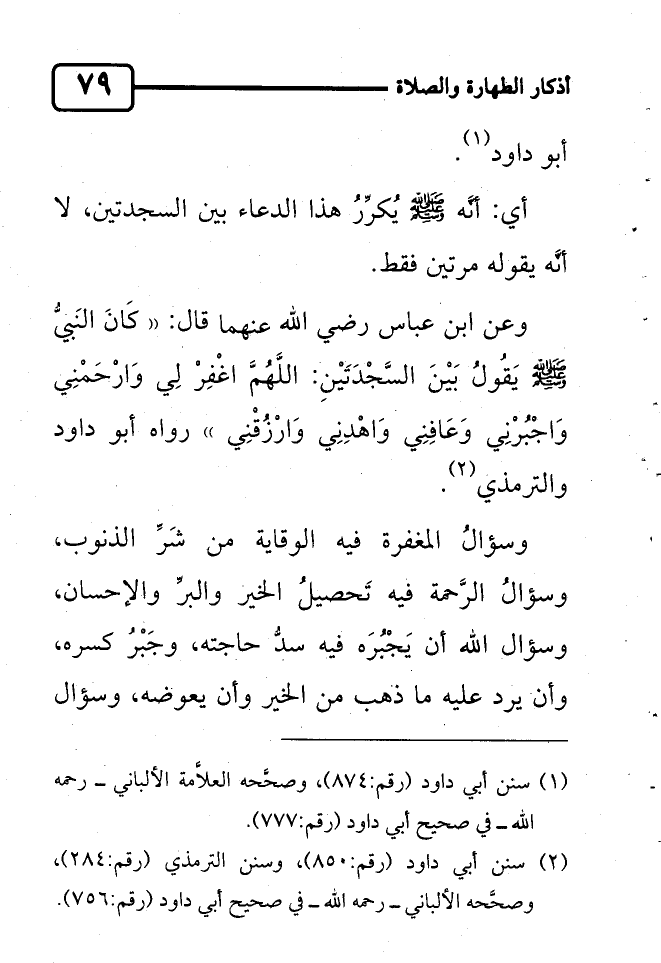 أذكار الطهارة والصلاة ٧٩
أبو داود(١).
أي: أنَّه ﷺ يُكرِّرُ هذا الدعاء بين السجدتين، لا
أنَّه يقوله مرتين فقط.
وعن ابن عباس رضي الله عنهما قال: « كَانَ النَبيُّ
ﷺ يَقُولُ بَيْنَ السَّجْدَتَيْنِ: اللَّهُمَّ اغْفِرْ لِي وَارْحَمْنِي
وَاجْبُرْنِي وَعَافِنِي وَاهْدِنِي وَارْزُقْنِي » رواه أبو داود
والترمذي(٢).
وسؤالُ المغفرة فيه الوقاية من شَرِّ الذنوب،
وسؤالُ الرَّحمة فيه تَحصيلُ الخير والبرِّ والإحسان،
وسؤال الله أن يَجْبُرَه فيه سدُّ حاجته، وجَبْرُ كسره،
وأن يرد عليه ما ذهب من الخير وأن يعوضه، وسؤال
(١) سنن أبي داود (رقم:٨٧٤)، وصحَّحه العلاَّمة الألباني ـ رحمه
الله ـ في صحيح أبي داود (رقم:٧٧٧).
(٢) سنن أبي داود (رقم:٨٥٠)، وسنن الترمذي (رقم:٢٨٤)،
وصحَّحه الألباني ـ رحمه الله ـ في صحيح أبي داود (رقم:٧٥٦).